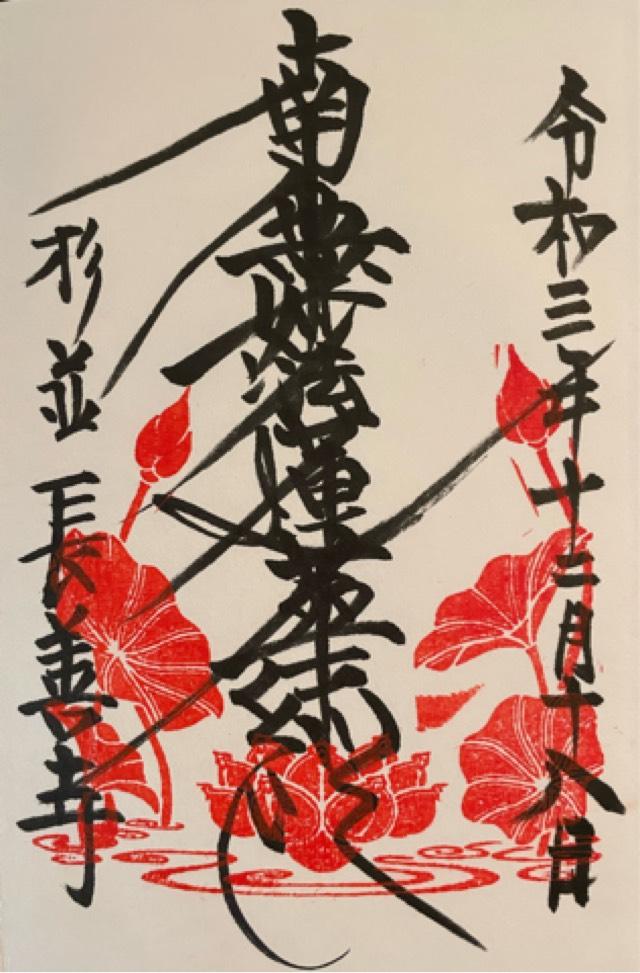 令和三年十二月十八日
南無妙法蓮華経
杉並 長善寺